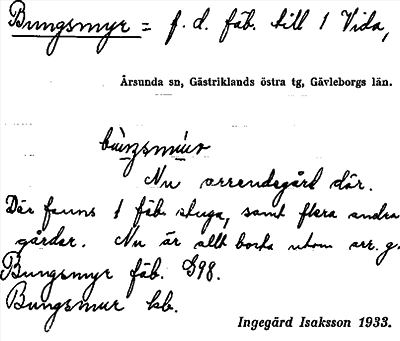 Bungsmyr = f. d. fäb. till 1 Vida,
Årsunda sn, Gästriklands östra tg, Gävleborgs län.
Nu arrendegård där.
Där fanns 1 fäb. stuga, samt flera andra
gårdar. Nu är allt borta utom arr. g.
Bungsmyr fäb. G98.
Bungsmur kb.
Ingegärd Isaksson 1933.